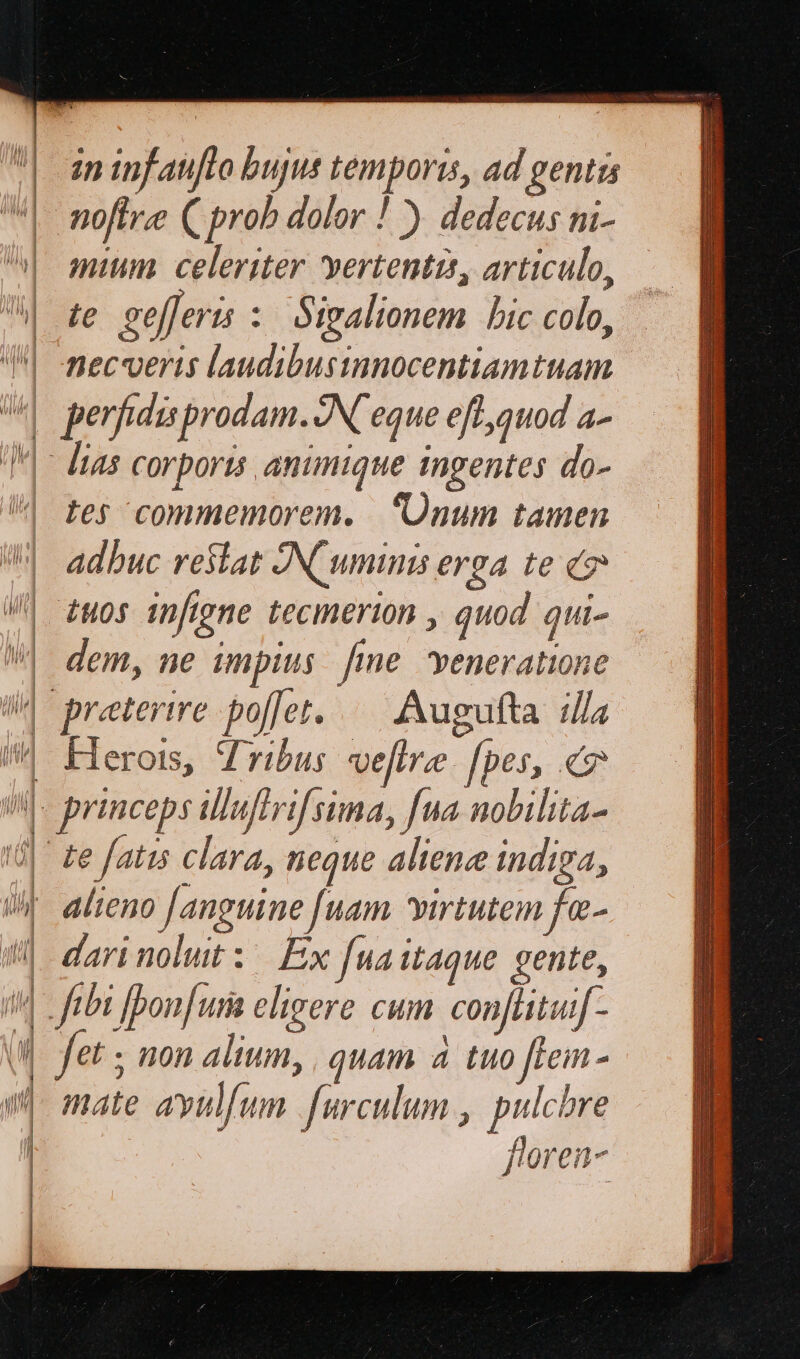 in infauſto hujus temporis, ad gentis
noſtræ ( proh dolor ! ) dedecus ni-
mium celeriter vertentis, articulo,
te geſſeris : Sigalionem hic colo,
nec veris laudibus innocentiam tuam
perfidis prodam. Neque eſt, quod a-
lias corporis animique ingentes do-
tes commemorem. Unum tamen
adhuc reſtat Numinis erga te &
tuos inſigne tecmerion , quod qui-
dem, ne impius ſine veneratione
præterire poſſet. Auguſta illa
Herois, Tribus veſtræ ſpes, &
princeps illuſtriſsima, ſua nobilita-
te ſatis clara, neque alienæ indiga,
alieno ſanguine ſuam virtutem fœ-
dari noluit : Ex ſua itaque gente,
ſibi ſponſum eligere cum conſtituiſ-
ſet ; non alium, quam à tuo ſtem-
mate avulſum ſurculum , pulchre
floren-